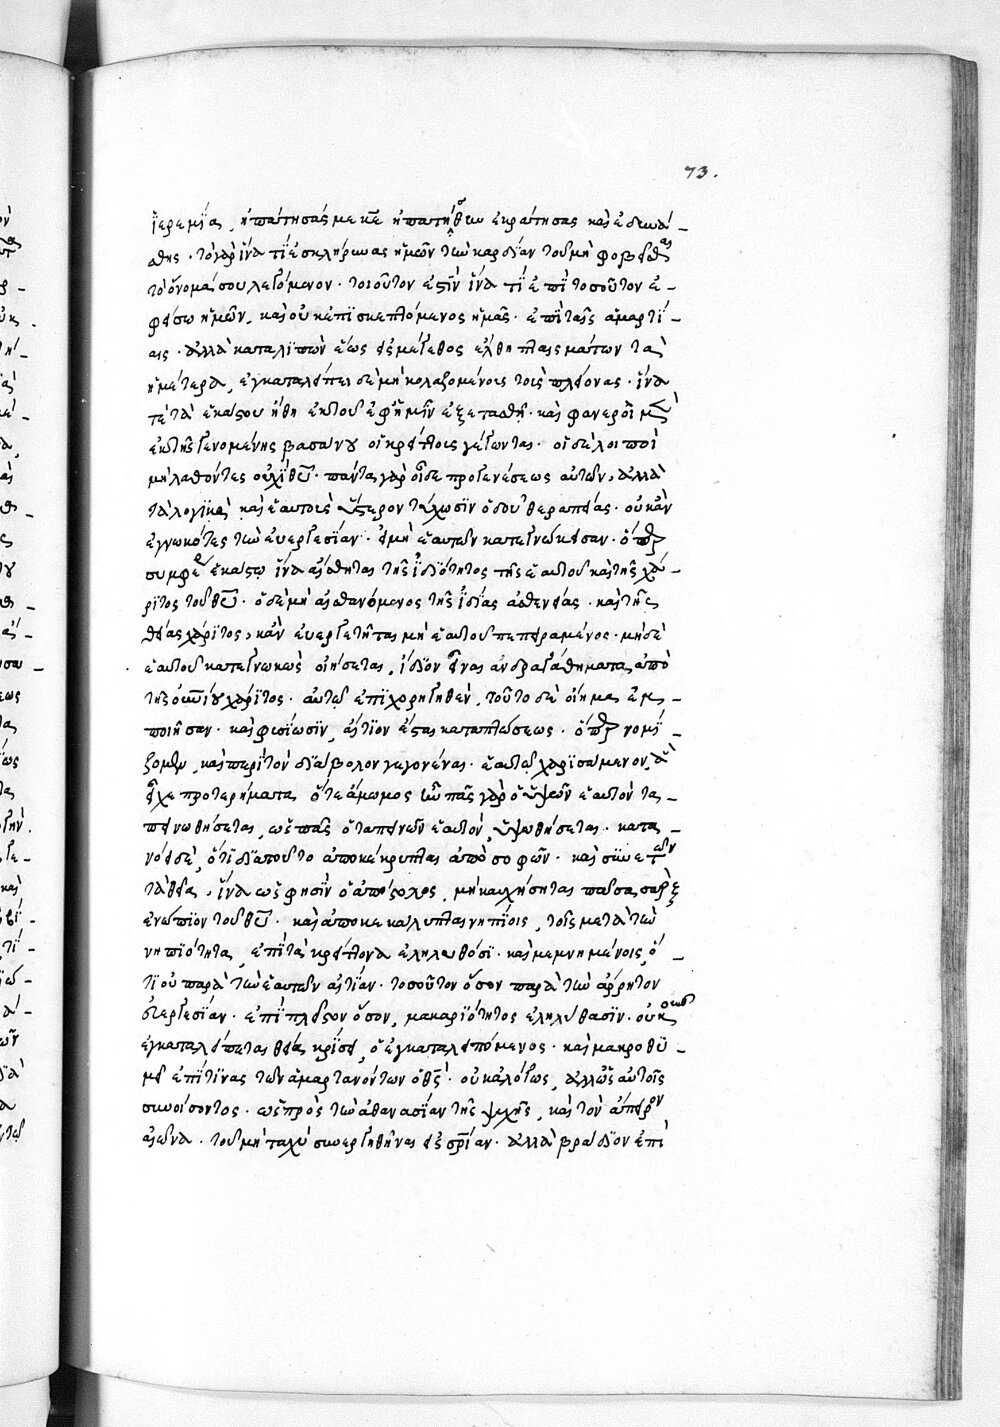 73.
ἱερεμία, ἠπάτησάς με κε ἠπατήθην ἐκράτησας καὶ ἐδυνά-
σθης. τὸ γὰρ ἵνα τί ἐσκλήρυνας ἡμῶν τὴν καρδίαν τοῦ μὴ φοβεῖσθαι
τὸ ὄνομά σου λεγόμενον. τοιοῦτον ἐστὶν ἵνα τί ἐπὶ τοσοῦτον ἐ-
φείσω ἡμῶν, καὶ οὐκ ἐπισκεπτόμενος ἡμᾶς. ἐπὶ ταῖς ἁμαρτί-
αις. ἀλλὰ καταλιπὼν ἕως εἰς μέγεθος ἔλθῃ πλαισμάτων τὰ
ἡμέτερα, ἐγκαταλείπει δὲ μὴ κολαζομένοις τοὺς πλείονας. ἵνα
τε τὰ ἑκάστου ἤθη ἐκ τοῦ ἐφ' ἡμῖν ἐξετασθῇ. καὶ φανεροὶ μὲν
ἐκ τῆς γενομένης βασάνου οἱ κρείττοις γένωνται. οἱ δὲ λοιποὶ
μὴ λαθόντες οὐχὶ θν. πάντα γὰρ οἶδε πρὸ γενέσεως αὐτῶν, ἀλλὰ
τὰ λογικὰ καὶ ἑαυτοὺς ὕστερον τύχωσιν ὁδοῦ θεραπείας. οὐκ ἂν
ἐγνωκότες τὴν εὐεργεσίαν. εἰ μὴ ἑαυτῶν κατεγνώκεισαν. ὅπερ
συμφέρει ἑκάστῳ ἵνα αἴσθηται τῆς ἰδιότητος τῆς ἑαυτοῦ καὶ τῆς χά-
ριτος τοῦ θυ. ὁ δὲ μὴ αἰσθανόμενος τῆς ἰδίας ἀσθενείας. καὶ τῆς
θείας χάριτος, κἂν εὐεργετῆται μὴ ἑαυτοῦ πεπειραμένος. μηδὲ
ἑαυτοῦ κατεγνωκὼς οἰήσεται, ἴδιον εἶναι ἀνδραγάθημα τὰ ἀπὸ
τῆς οὐνίου χάριτος. αὐτῷ ἐπιχορηγηθέν, τοῦτο δὲ οἴημα ἐμ-
ποιῆσαν. καὶ φυσίωσιν, αἴτιον ἔσται καταπτώσεως. ὅπερ νομί-
ζομεν, καὶ περὶ τὸν διάβολον γεγονέναι. ἑαυτῷ χαρισάμενον, ἃ
εἶχε προτερήματα ὅτε ἄμωμος ἦν πᾶς γὰρ ὁ ὑψῶν ἑαυτὸν τα-
πεινωθήσεται, ὡς πᾶς ὁ ταπεινῶν ἑαυτὸν, ὑψωθήσεται. κατα-
νόει δὲ, ὅτι διὰ τοῦτο ἀποκέκρυπται ἀπὸ σοφῶν. καὶ συνετῶν
τὰ θεῖα, ἵνα ὡς φησὶν ὁ ἀπόστολος, μὴ καυχήσηται πᾶσα σὰρξ
ἐνώπιον τοῦ θυ. καὶ ἀποκεκάλυπται νηπίοις, τοῖς μετὰ τὴν
νηπιότητα, ἐπὶ τὰ κρείττονα ἐληλυθόσι. καὶ μεμνημένοις, ὅ-
τι οὐ παρὰ τὴν ἑαυτῶν αἰτίαν. τοσοῦτον ὅσον παρὰ τὴν ἄρρητον
εὐεργεσίαν. ἐπὶ πλεῖστον ὅσον, μακαριότητος ἐληλύθασιν. οὐκοῦν
ἐγκαταλείπεται θείᾳ κρίσει, ὁ ἐγκαταλειπόμενος. καὶ μακροθυ-
μεῖ ἐπί τινας τῶν ἁμαρτανόντων ὁ θς. οὐκ ἀλόγως, ἀλλ' ὡς αὐτοῖς
συνοίσοντος. ὡς πρὸς τὴν ἀθανασίαν τῆς ψυχῆς, καὶ τὸν ἄπειρον
αἰῶνα. τοῦ μὴ ταχὺ συνεργηθῆναι εἰς σρίαν. ἀλλὰ βράδιον ἐπὶ